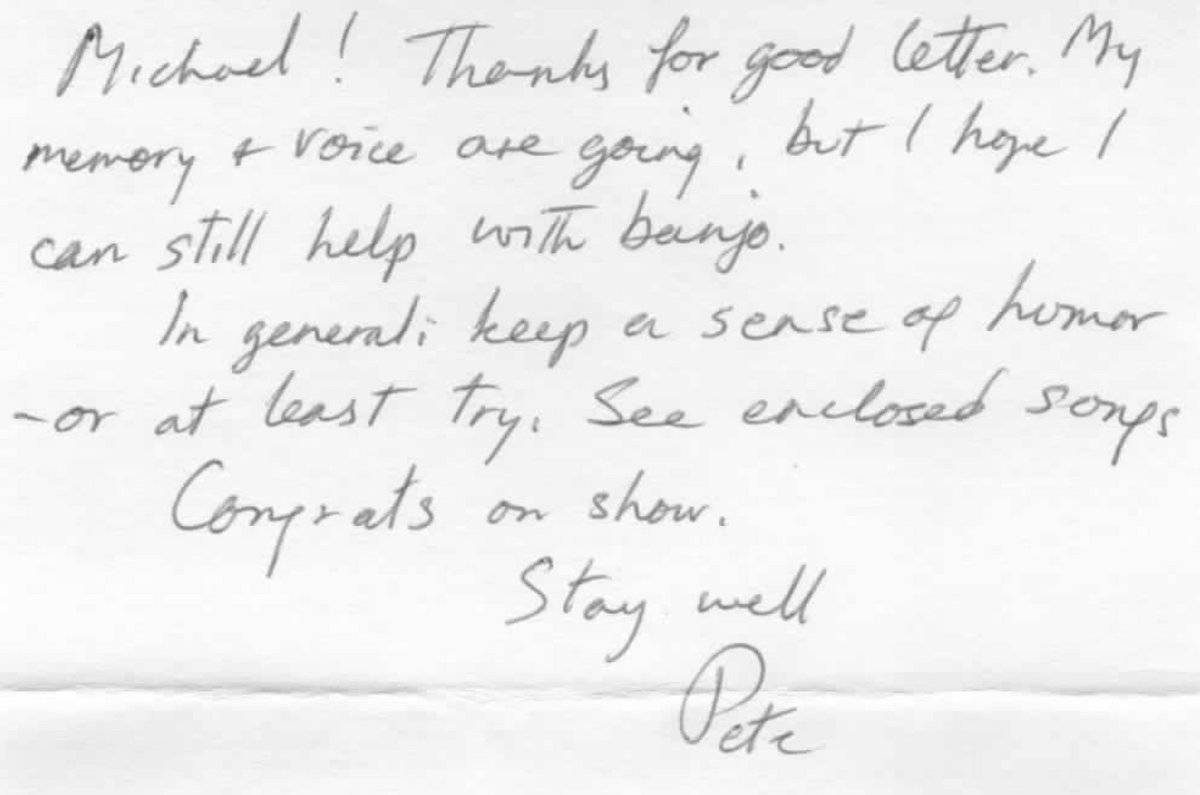 Michael! Thanks for good letter. My
memory + voice are going, but I hope I
can still help with banjo.
In general: keep a sense of humor
-or at least try. See enclosed songs
Congrats on show.
Stay well
Pete